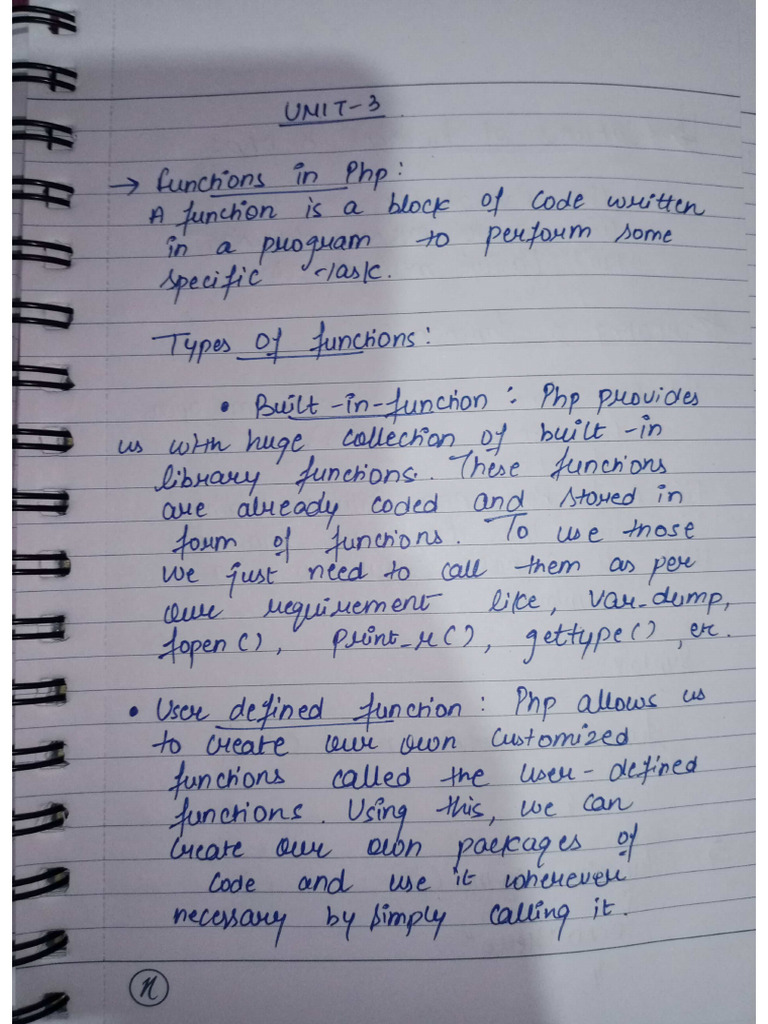 UNIT-3
→ functions in Php:
A function is a block of code written
in a program to perform some
specific task.
Types of functions:
• Built-in-function : Php provides
us with huge collection of built-in
library functions. These functions
are already coded and stored in
form of functions. To use those
we just need to call them as per
our requirement like, var_dump,
fopen(), print_r(), gettype(), etc.
• User defined function : Php allows us
to create our own customized
functions called the user-defined
functions. Using this, we can
create our own packages of
code and use it wherever
necessary by simply calling it.